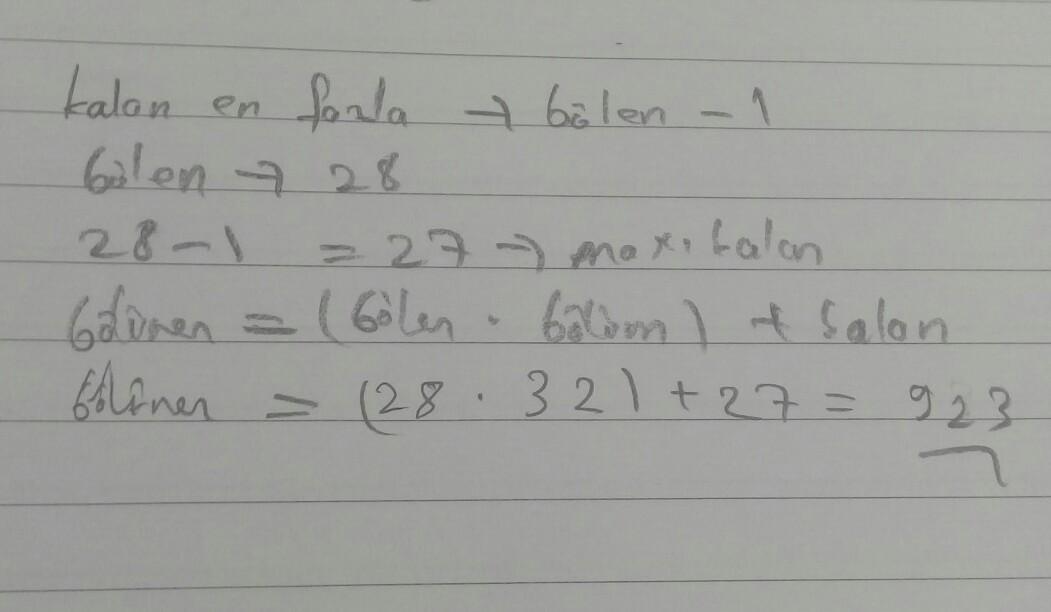 kalan en fazla → bölen - 1
bölen → 28
28 - 1 = 27 → max. kalan
bölünen = (bölen . bölüm) + kalan
bölünen = (28 . 32) + 27 = 923